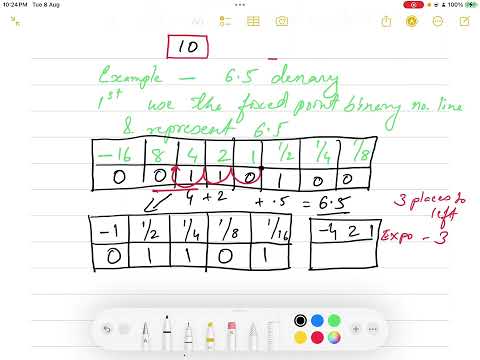 10:24 PM Tue 8 Aug
100%
10
Example — 6.5 denary
1st use the fixed point binary no. line
& represent 6.5
-16 8 4 2 1 1/2 1/4 1/8
0 0 1 1 0 1 0 0
4 + 2 + .5 = 6.5
3 places to left
-1 1/2 1/4 1/8 1/16
0 1 1 0 1
-4 2 1
Expo - 3